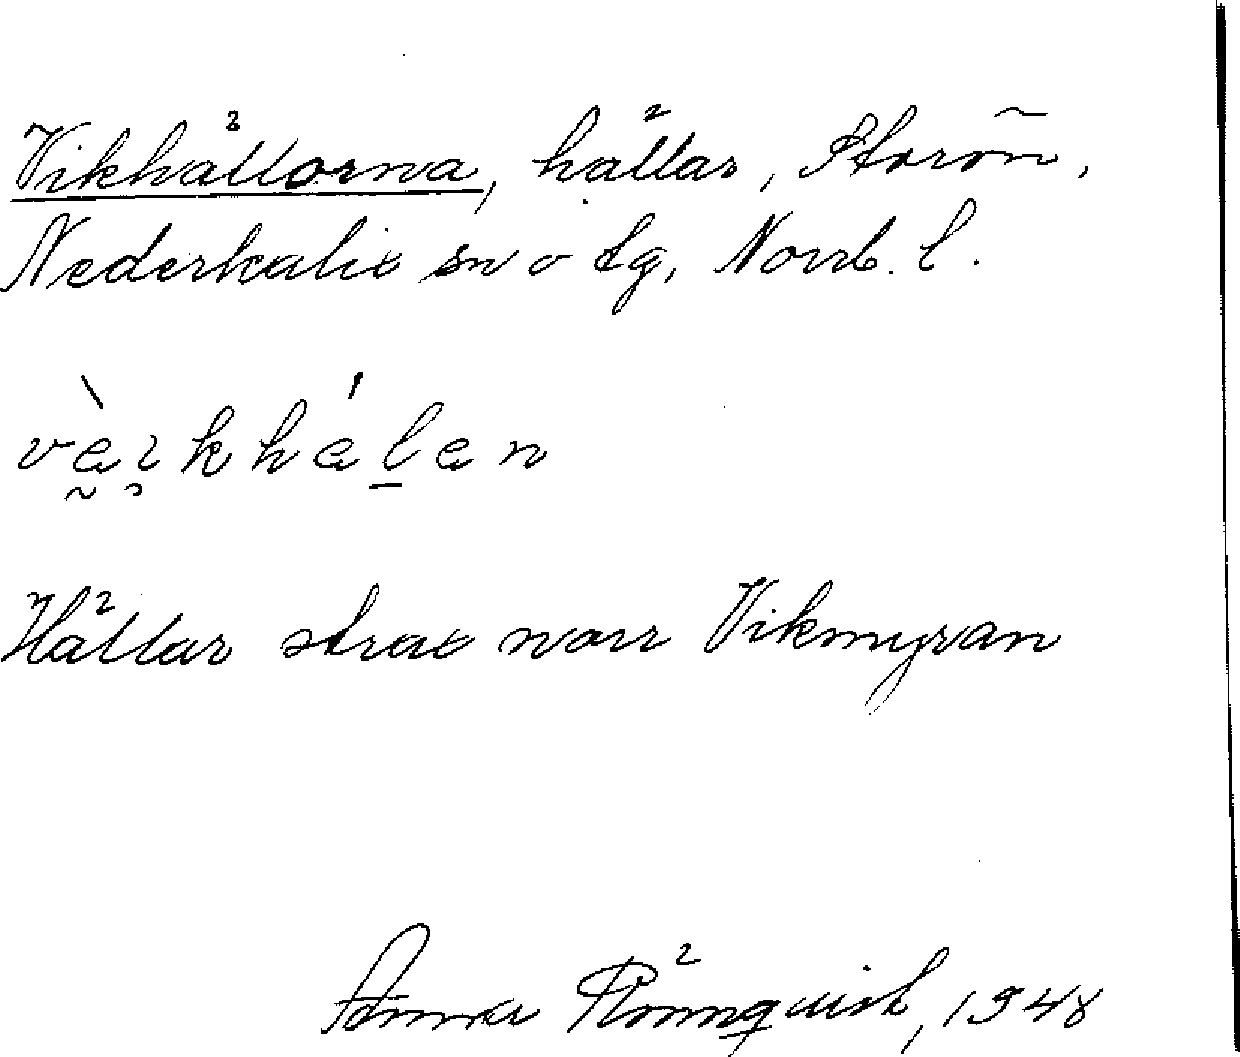 Vikhällorna, hällar, Storön,
Nederkalix sn o tg, Norrb. l.
Hällar strax norr Vikmyran
Anna Rönnquist, 1948